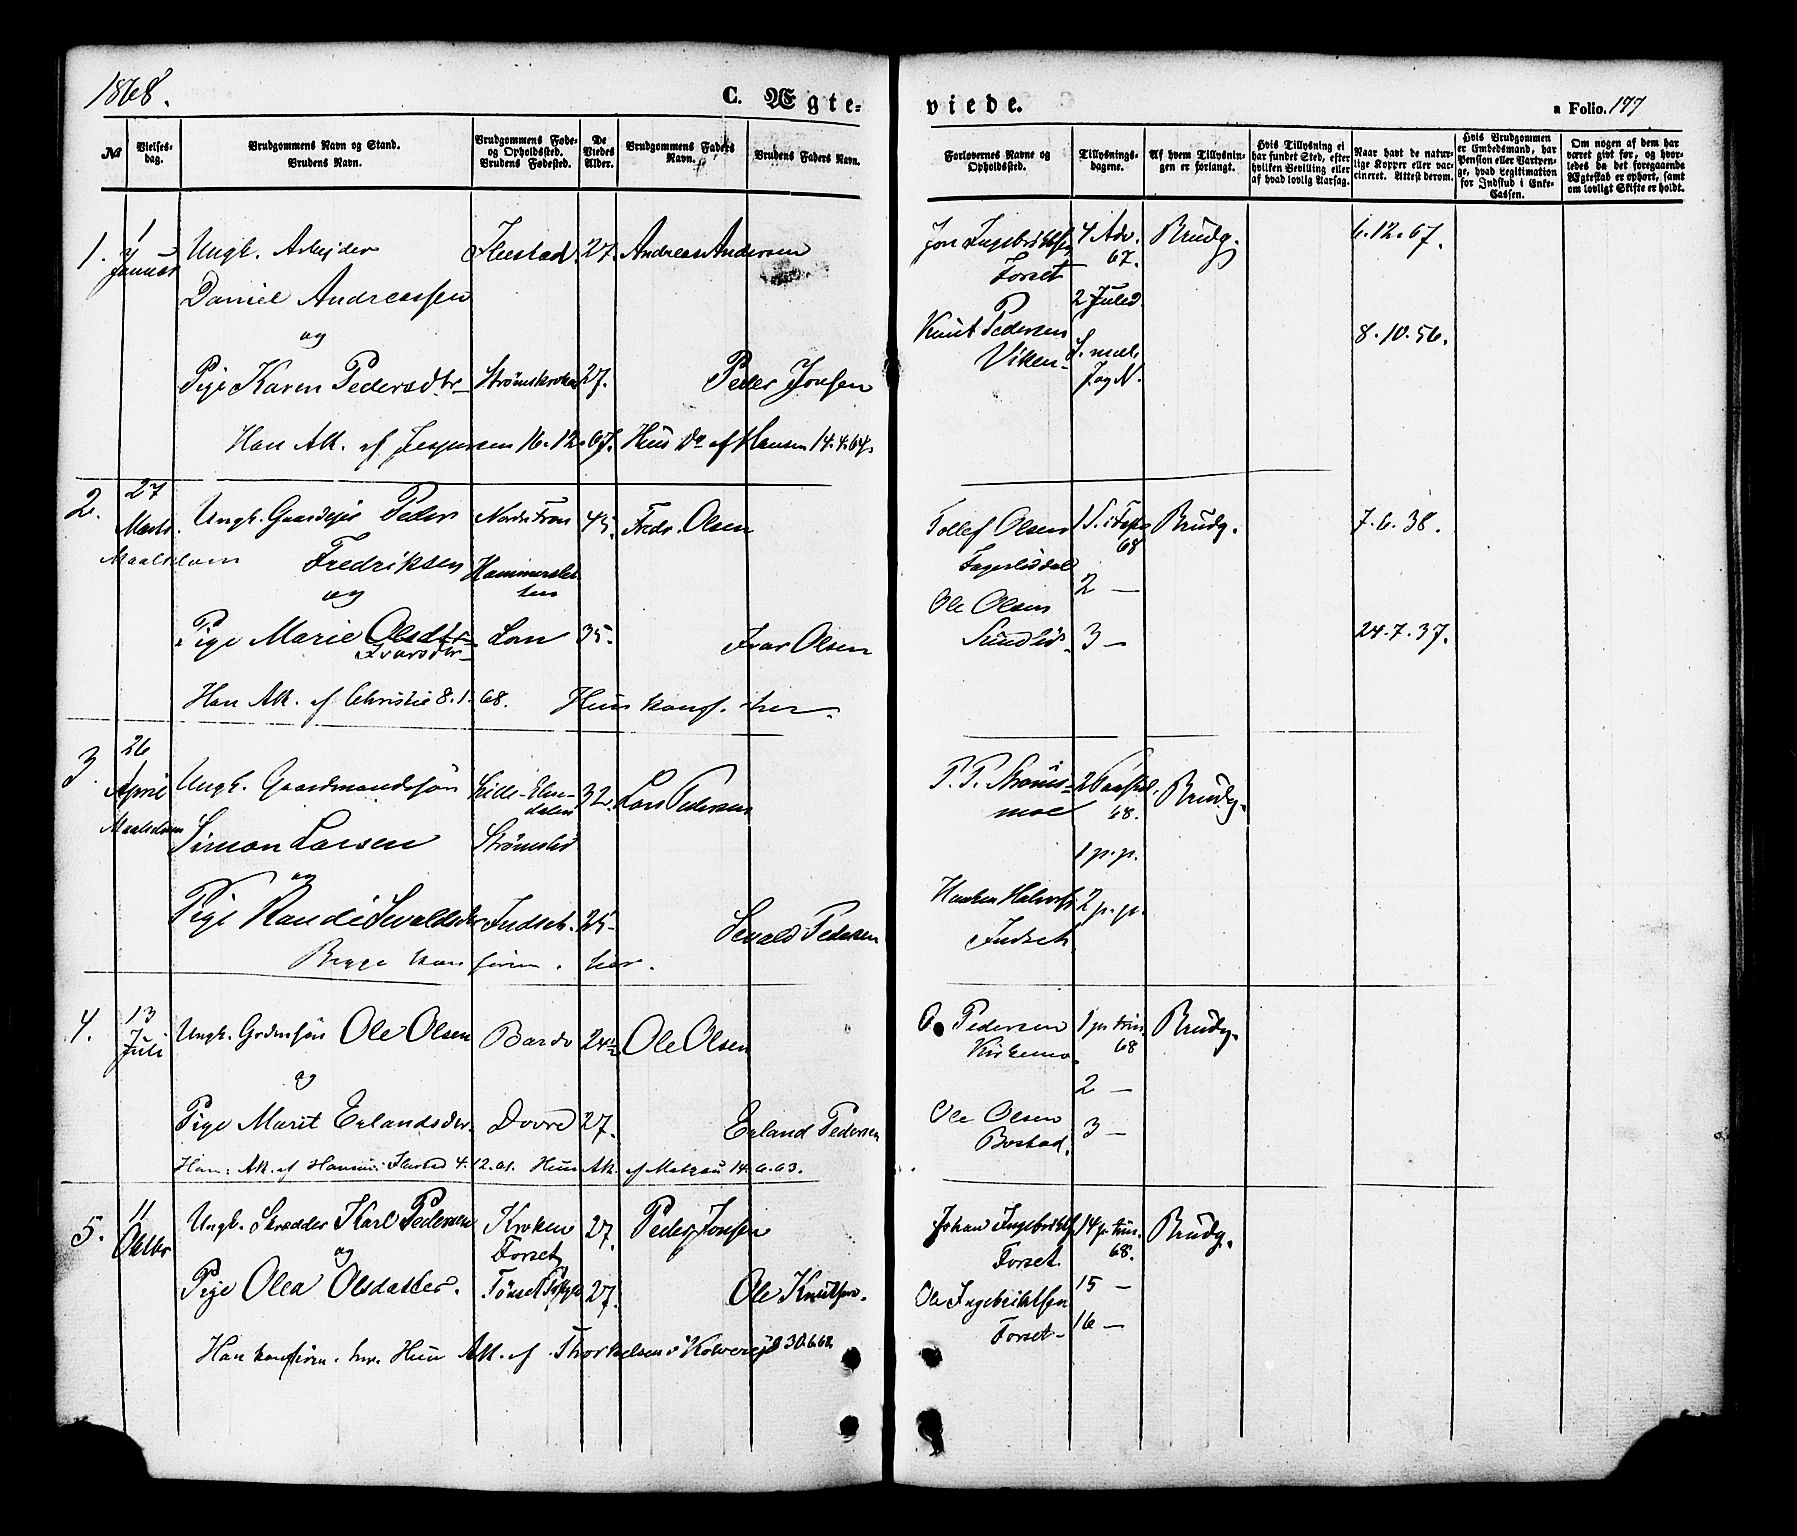 1868.
C. Ægte-
viede.
a Folio. 177
№
Vielses-
dag.
Brudgommens Navn og Stand.
Brudens Navn.
Brudgommens Føde-
og Opholdssted.
Brudens Fødested.
De
Viedes
Alder.
Brudgommens Faders
Navn.
Brudens Faders Navn.
Forlovernes Navne og
Opholdssted.
Tillysnings-
dagene.
Af hvem Tillysnin-
gen er forlangt.
Hvis Tillysning ei
har fundet Sted, efter
hvilken Bevilling eller
af hvad lovlig Aarsag.
Naar havt de natur-
lige Kopper eller vac-
cineret. Attest derom.
Hvis Brudgommen
er Embedsmand, har
Pension eller Vartpen-
ge, hvad Legitimation
for Indskud i Enke-
Cassen.
Om nogen af dem har
været givt før, og hvor-
ledes da det foregaaende
Ægteskab er ophørt, samt
om lovligt Skifte er holdt.
1.
Januar
Ungk. Arbejder
Daniel Andreassen
og
Pige Karen Pedersdtr
Flestad
27.
Andreas Andersen
Strømskroken
27.
Peder Jonsen
Han Att. af Jespersen 16.12.67. Hun Do af Hansen 14.4.64.
Jon Ingebrigtsen
Forset
Knut Pedersen
Viken
4 Adv.
67.
2 Juled.
Brudg.
6.12.67.
8.10.56.
2.
27
Marts.
Maalsdalen
Ungk. Gaardejer Peder
Fredriksen
og
Pige Marie Olsdtr
Ivarsdtr
Nordre Fron
45.
Fredr. Olsen
Lom
35.
Ivar Olsen
Han Att. af Christie 8.1.68. Hun konf. her.
Tollef Olsen
Fagerlidal
Ole Olsen
Sundli
1 S. i Faste
68
2 —
3 —
Brudg.
7.6.38.
24.7.37.
3.
26
April
Ungk. Gaardmandssøn
Simon Larsen
og
Pige Randi Sevaldsdtr
32.
Lars Pedersen
Strømsli
Indset.
25
Sevald Pedersen
Begge konfirm. her.
P. P. Strøms-
moe
Indset
68.
1 p. p.
2 p. p.
Brudg.
4.
13
Juli
Ungk. Grdmsøn Ole Olsen
og
Pige Marit Erlandsdtr.
Bardo
24½
Ole Olsen
Dovre
27.
Erland Pedersen
Han: Att. af Hansen Flestad 4.12.61. Hun Att. af Matzau 14.6.63.
O. Pedersen
Kirkemo
Ole Olsen
Bostad.
1 p. trin.
68
2 —
3 —
Brudg.
5.
11
Oktbr
Ungk. Skrædder Karl Pedersen
og
Pige Olea Olsdatter.
Kroken
Forset
27.
Peder Jonsen
27.
Ole Knutsen.
Han konfirm. her. Hun Att. af Thorkelsen i Kolvereid 30.6.68.
Johan Ingebrigts
Forset.
Ole Ingebrigtsen
Forset
14 p. trin.
68.
15 —
16 —
Brudg.